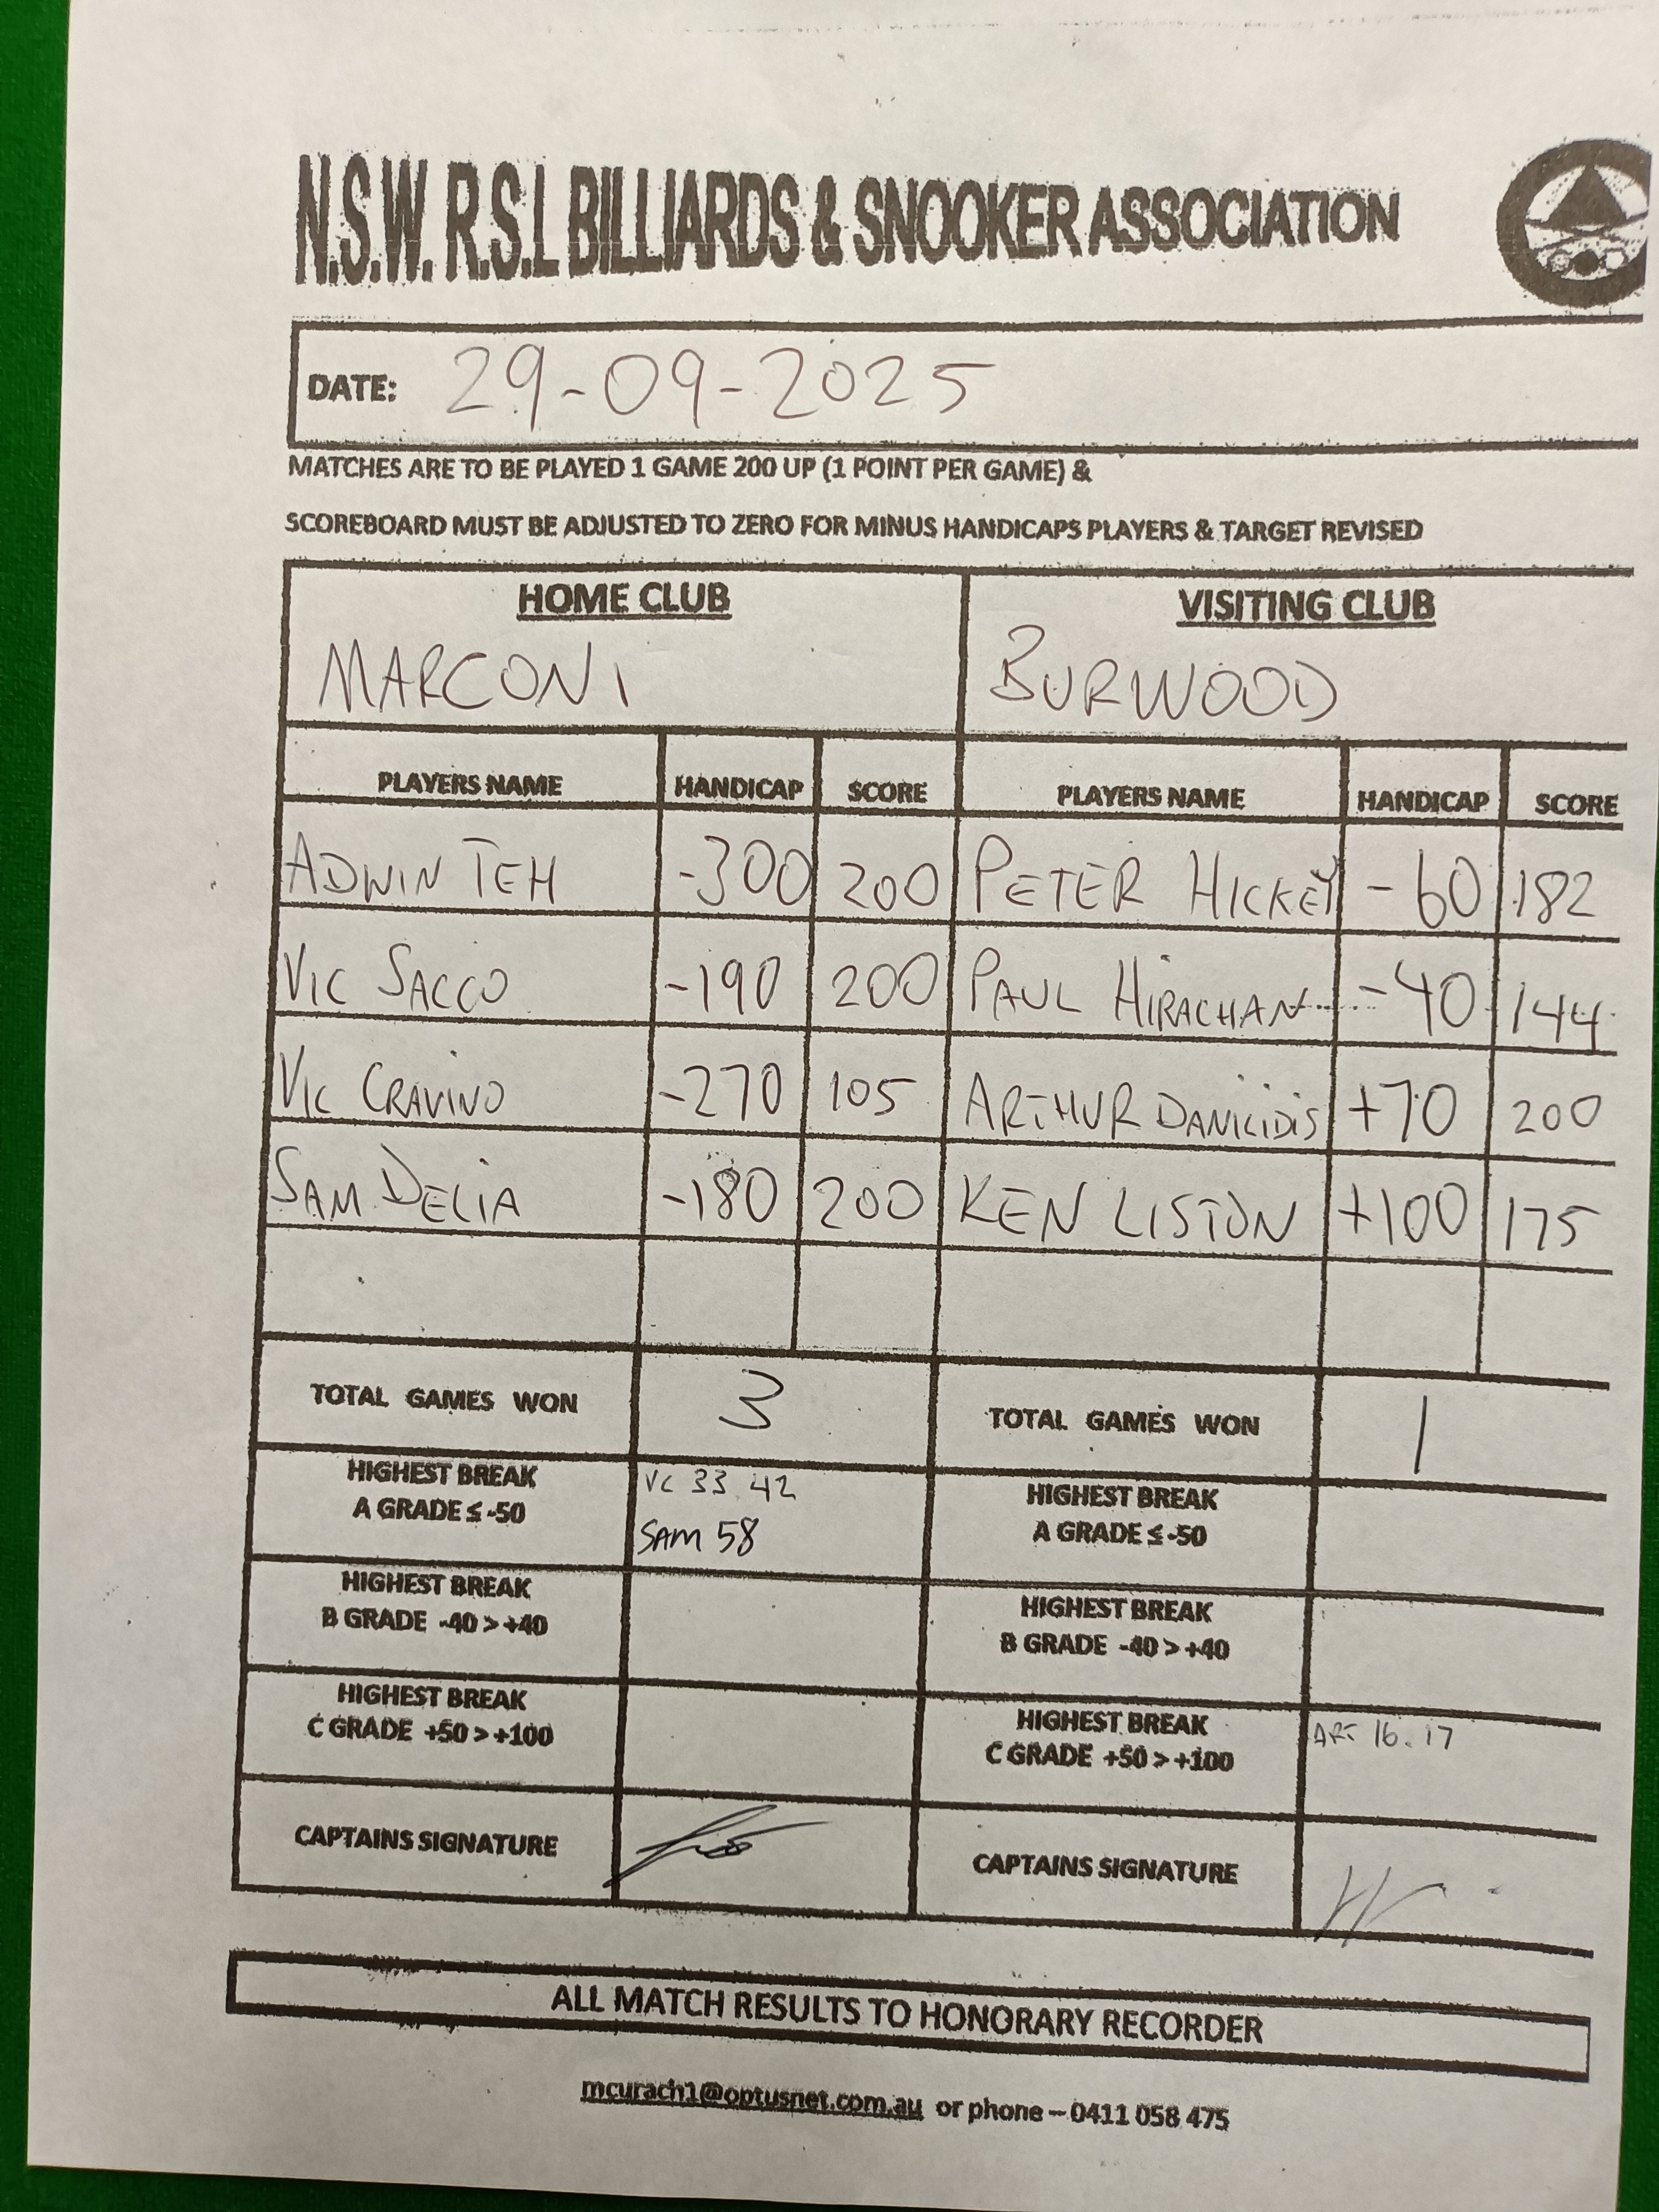 N.S.W. R.S.L BILLIARDS & SNOOKER ASSOCIATION
DATE: 29-09-2025
MATCHES ARE TO BE PLAYED 1 GAME 200 UP (1 POINT PER GAME) &
SCOREBOARD MUST BE ADJUSTED TO ZERO FOR MINUS HANDICAPS PLAYERS & TARGET REVISED
HOME CLUB VISITING CLUB
MARCONI BURWOOD
PLAYERS NAME HANDICAP SCORE PLAYERS NAME HANDICAP SCORE
ADWIN TEH -300 200 PETER HICKEY -60 182
VIC SACCO -190 200 PAUL HIRACHAN -40 144
VIC CRAVINO -270 105 ARTHUR DANILIDIS +70 200
SAM DELIA -180 200 KEN LISTON +100 175
TOTAL GAMES WON 3 TOTAL GAMES WON 1
HIGHEST BREAK VC 33. 42 HIGHEST BREAK
A GRADE ≤ -50 SAM 58 A GRADE ≤ -50
HIGHEST BREAK HIGHEST BREAK
B GRADE -40 > +40 B GRADE -40 > +40
HIGHEST BREAK HIGHEST BREAK ART 16. 17
C GRADE +50 > +100 C GRADE +50 > +100
CAPTAINS SIGNATURE CAPTAINS SIGNATURE
ALL MATCH RESULTS TO HONORARY RECORDER
mcurach1@optusnet.com.au or phone – 0411 058 475